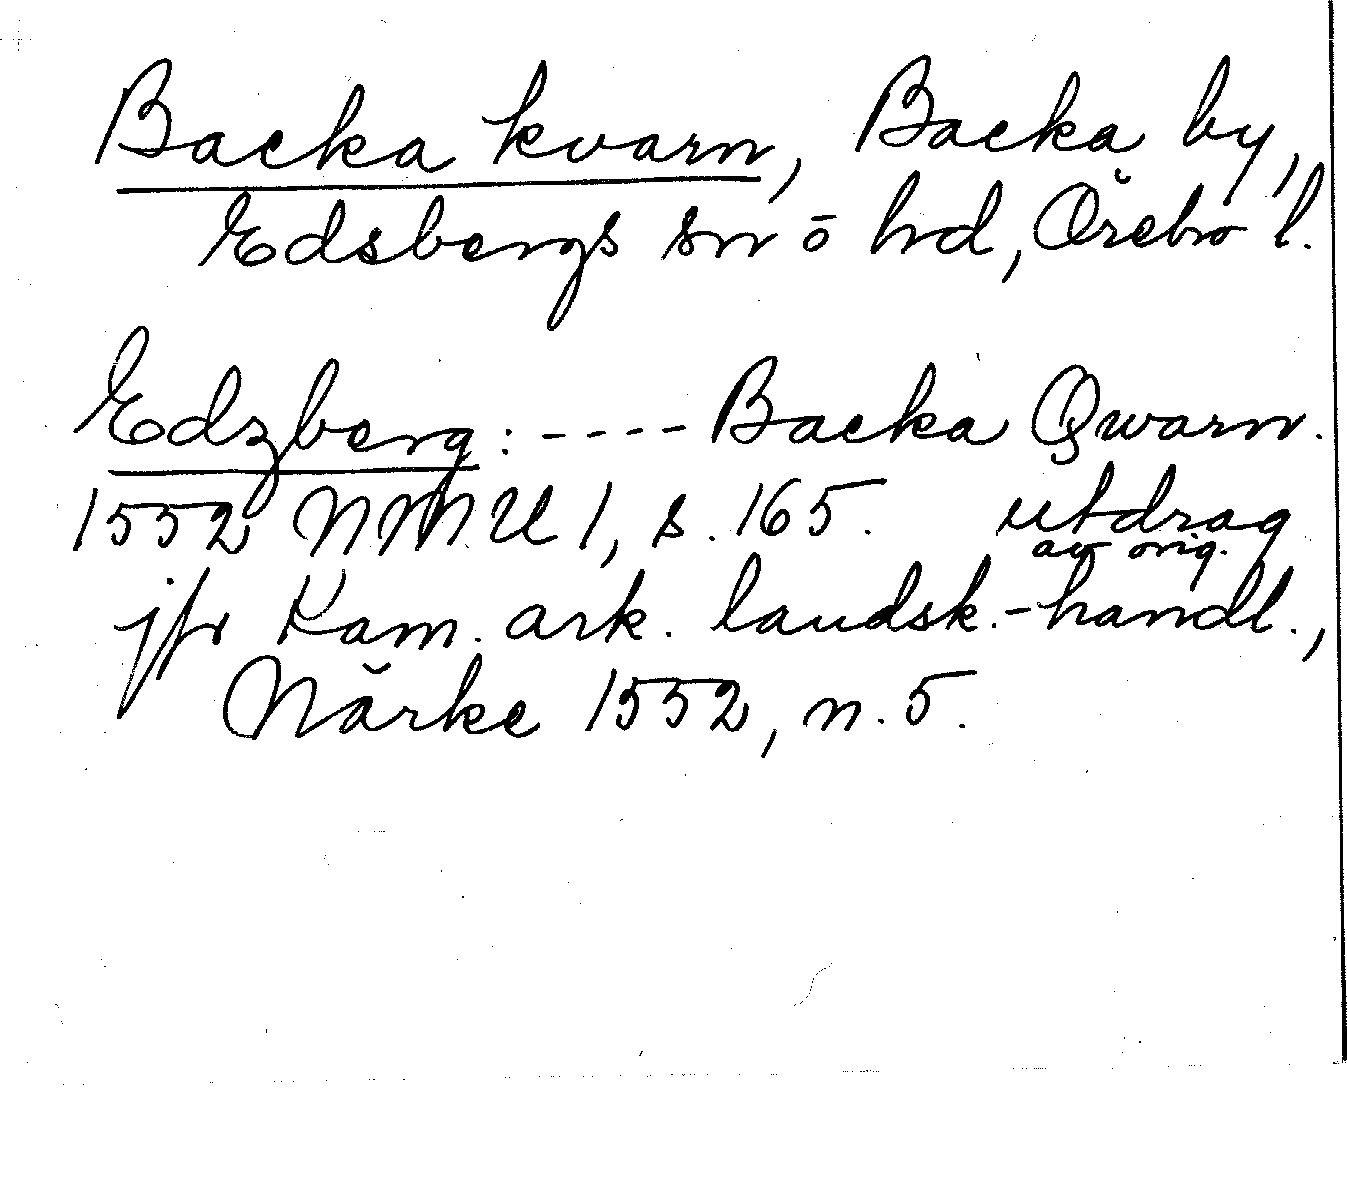 Backa kvarn, Backa by,
Edsbergs sn ō hd, Örebro l.
Edzberg: ---- Backa Qwarn.
1552 NMU 1, s. 165. utdrag
av orig.
jfr Kam. ark. landsk.-handl.,
Närke 1552, n. 5.